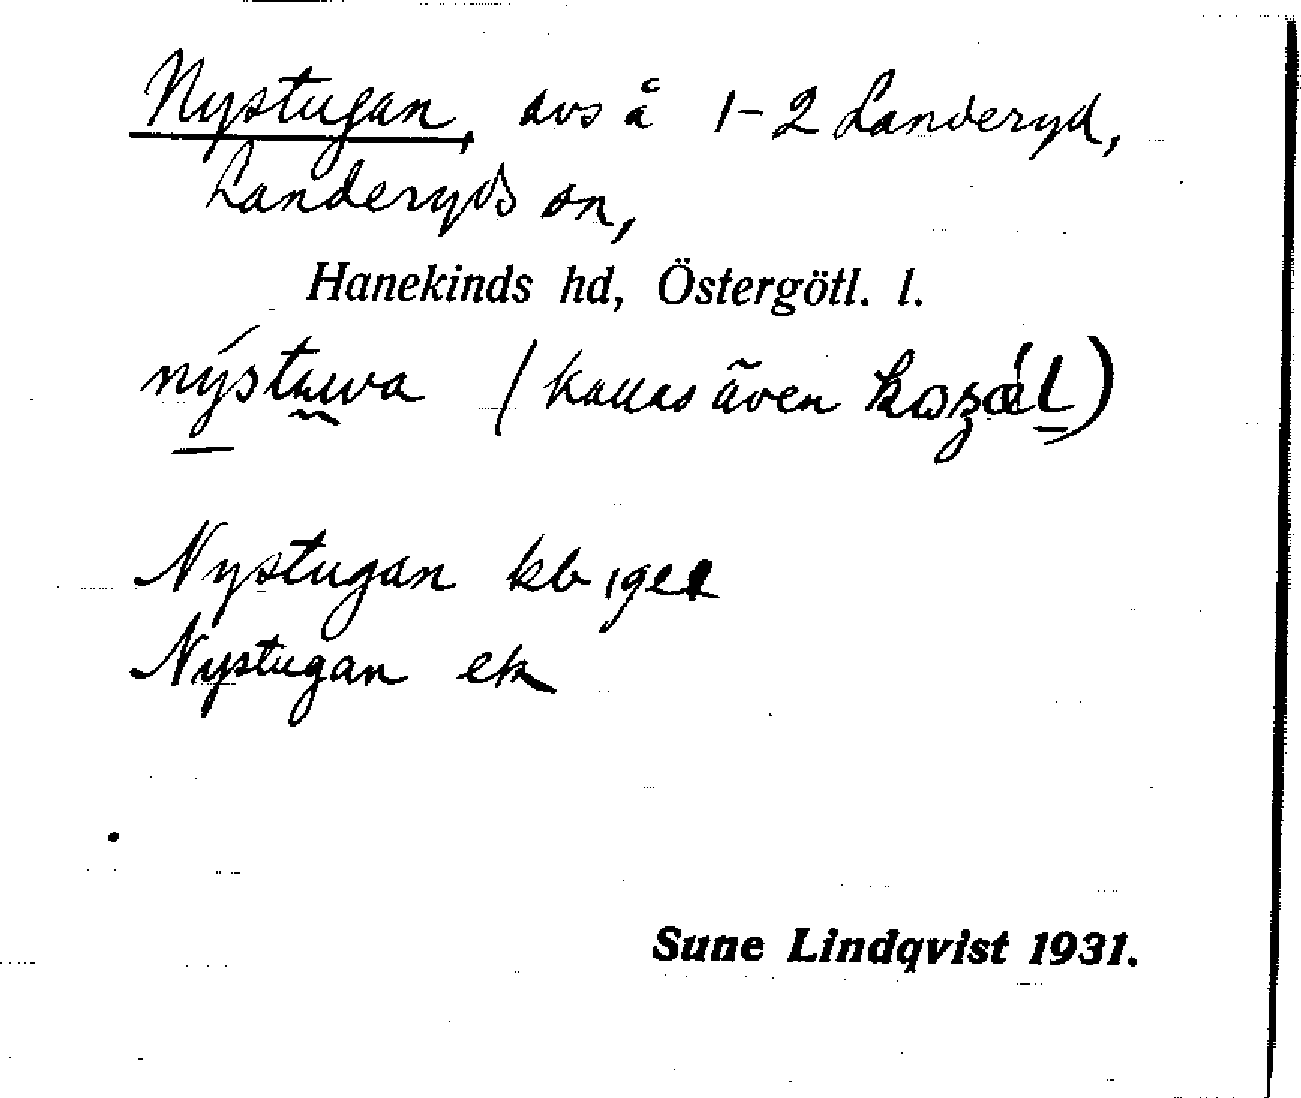 Nystugan, avs å 1-2 Landeryd,
Landeryds sn,
Hanekinds hd, Östergötl. l.
nýstuwa (kallas även
Nystugan kb
Nystugan ek
Sune Lindqvist 1931.